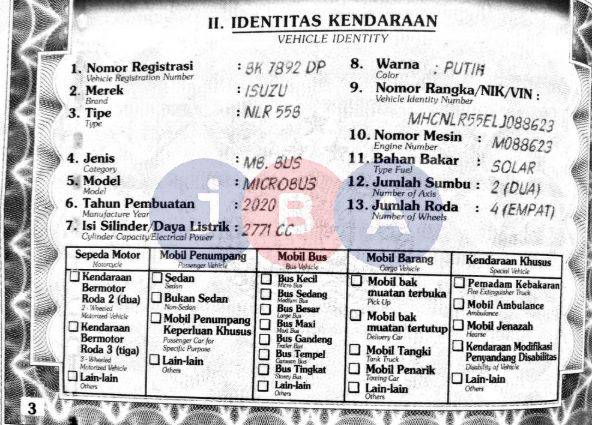 II. IDENTITAS KENDARAAN
VEHICLE IDENTITY
1. Nomor Registrasi : BK 7892 DP
Vehicle Registration Number
2. Merek : ISUZU
Brand
3. Tipe : NLR 55B
Type
4. Jenis : MB. BUS
Category
5. Model : MICROBUS
Model
6. Tahun Pembuatan : 2020
Manufacture Year
7. Isi Silinder/Daya Listrik : 2771 CC
Cylinder Capacity/Electrical Power
8. Warna : PUTIH
Color
9. Nomor Rangka/NIK/VIN :
Vehicle Identity Number
MHCNLR55ELJ088623
10. Nomor Mesin : M088623
Engine Number
11. Bahan Bakar : SOLAR
Type Fuel
12. Jumlah Sumbu : 2 (DUA)
Number of Axis
13. Jumlah Roda : 4 (EMPAT)
Number of Wheels
iBA
Sepeda Motor
Motorcycle
Kendaraan
Bermotor
Roda 2 (dua)
2 - Wheeled
Motorized Vehicle
Kendaraan
Bermotor
Roda 3 (tiga)
3 - Wheeled
Motorized Vehicle
Lain-lain
Others
Mobil Penumpang
Passenger Vehicle
Sedan
Sedan
Bukan Sedan
Non-Sedan
Mobil Penumpang
Keperluan Khusus
Passenger Car for
Specific Purpose
Lain-lain
Others
Mobil Bus
Bus Vehicle
Bus Kecil
Micro Bus
Bus Sedang
Medium Bus
Bus Besar
Large Bus
Bus Maxi
Maxi Bus
Bus Gandeng
Trailer Bus
Bus Tempel
Bus Tingkat
Lain-lain
Others
Mobil Barang
Cargo Vehicle
Mobil bak
muatan terbuka
Pick Up
Mobil bak
muatan tertutup
Delivery Car
Mobil Tangki
Tank Truck
Mobil Penarik
Towing Car
Lain-lain
Others
Kendaraan Khusus
Special Vehicle
Pemadam Kebakaran
Fire Extinguisher Truck
Mobil Ambulance
Ambulance
Mobil Jenazah
Hearse
Kendaraan Modifikasi
Penyandang Disabilitas
Disability of Vehicle
Lain-lain
Others
3